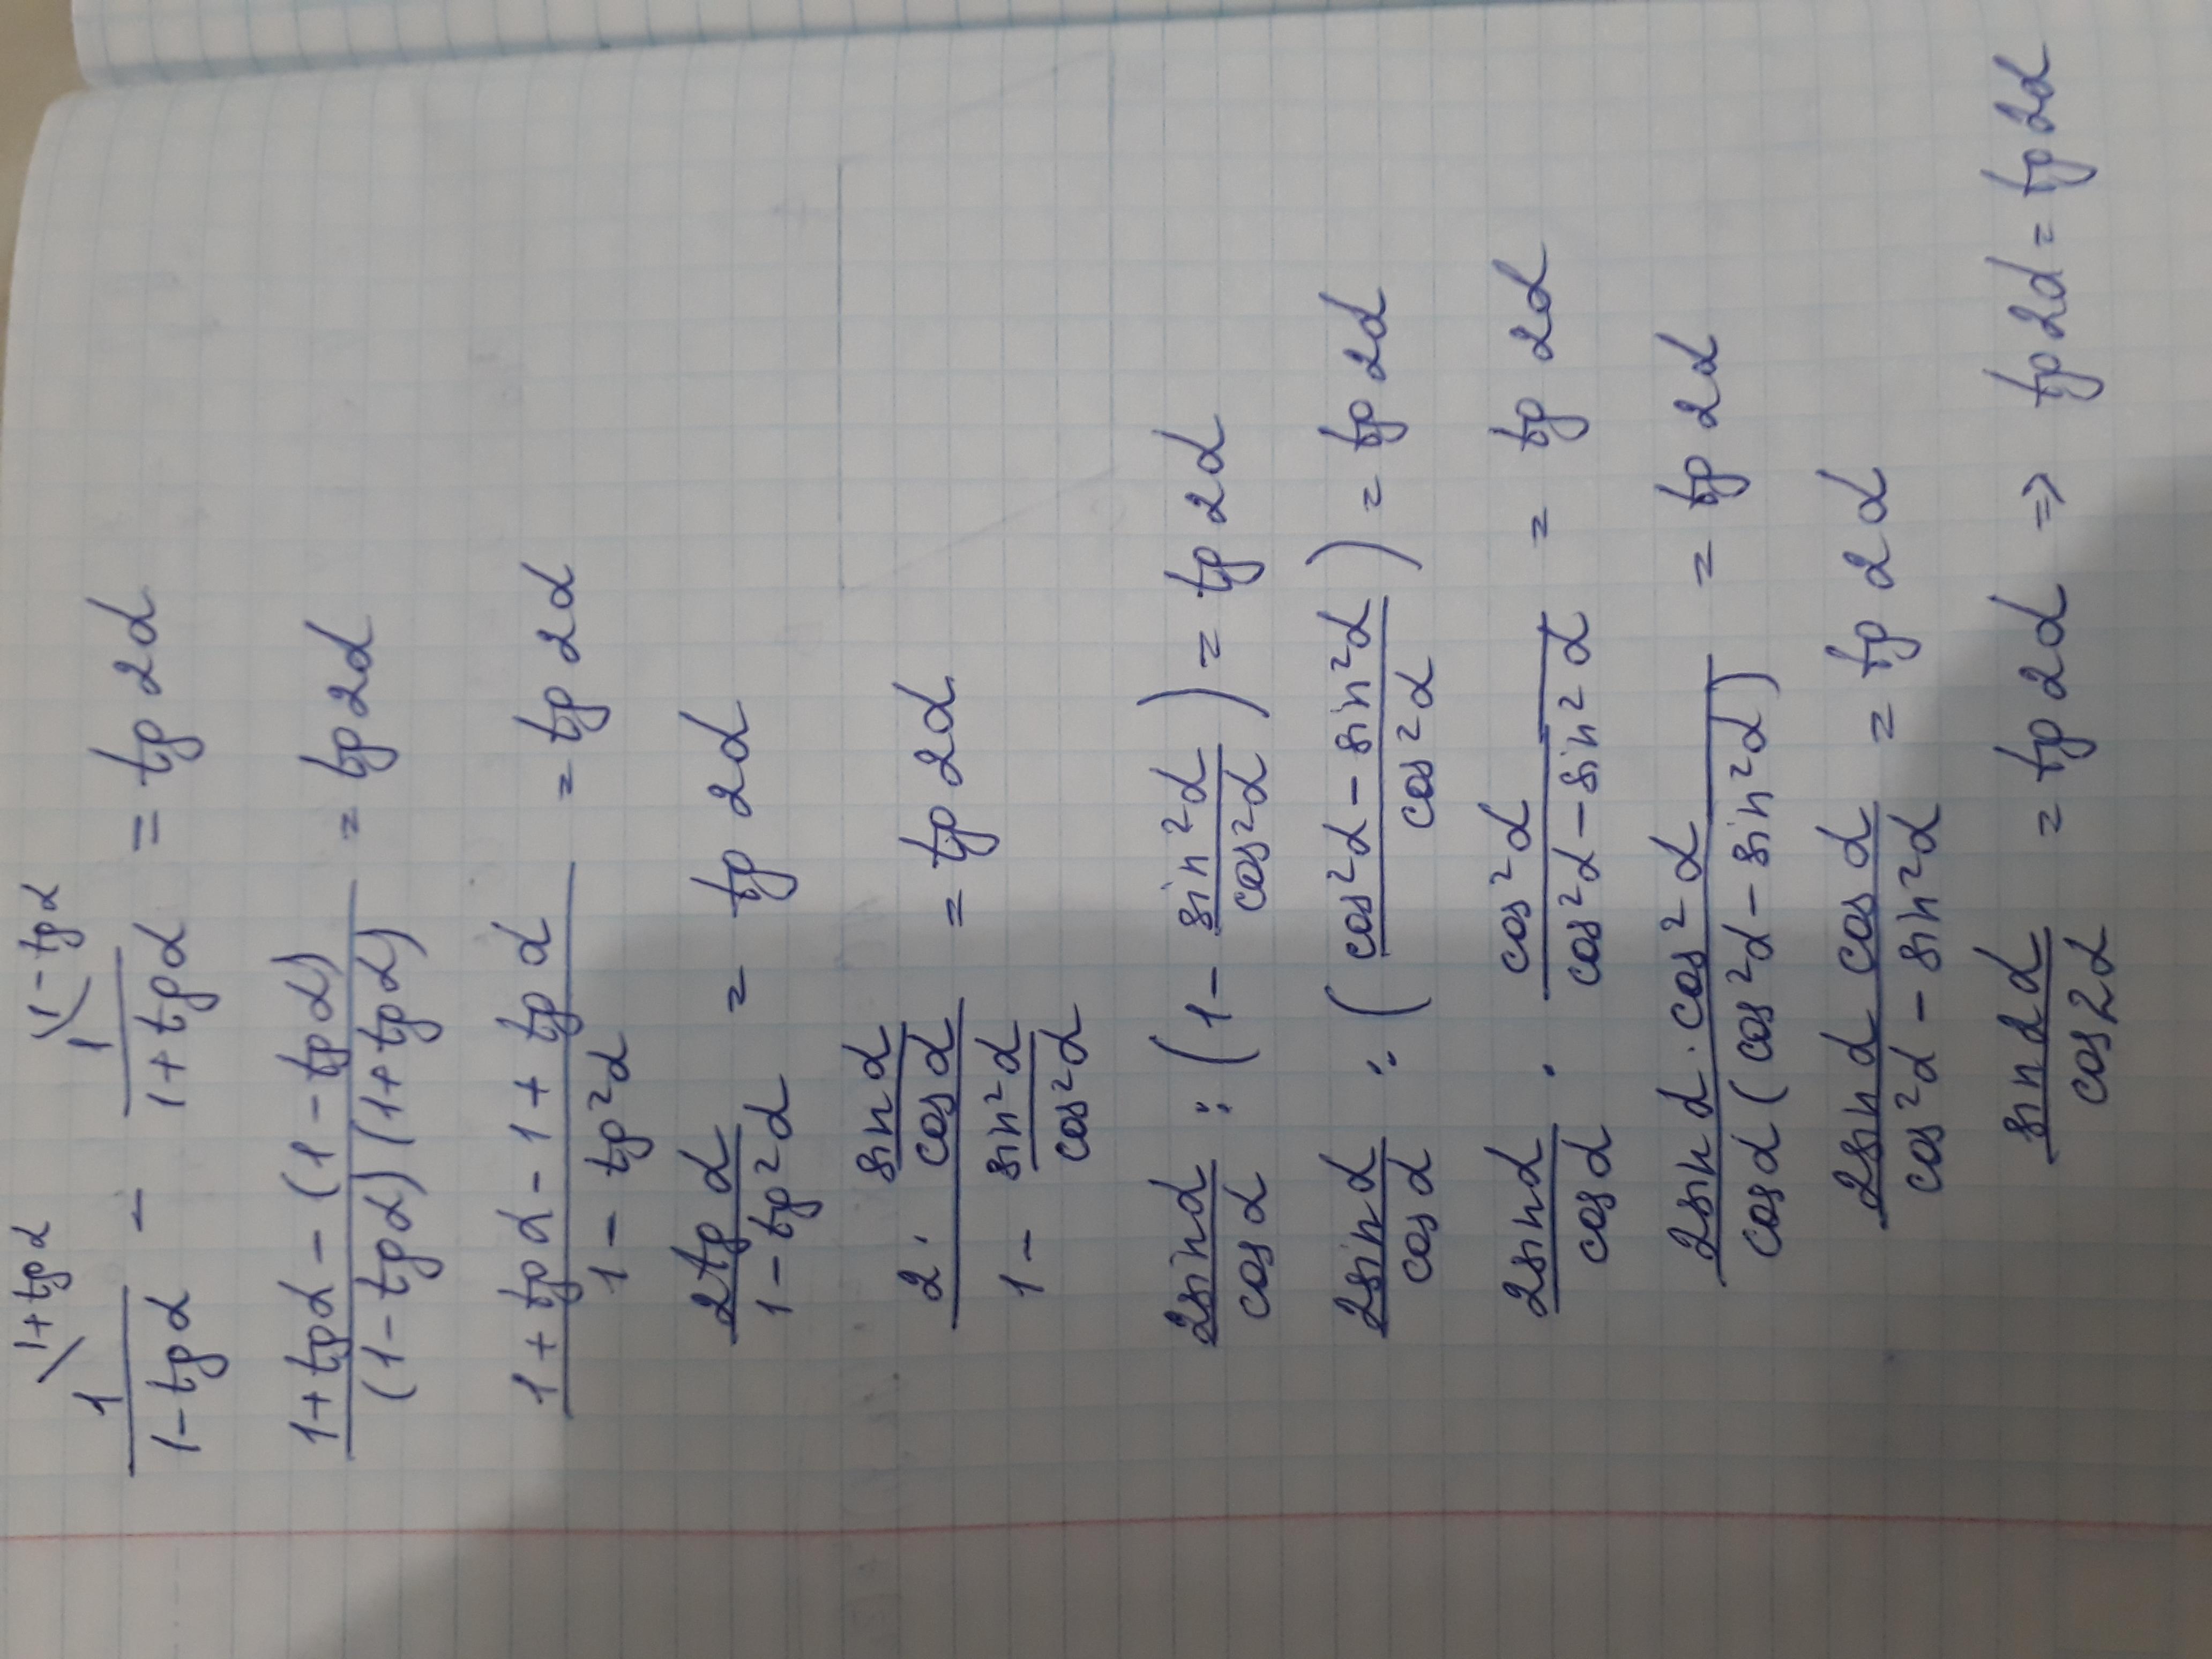 1\1+tgα / 1-tgα - 1\1-tgα / 1+tgα = tg 2α
1+tgα-(1-tgα) / (1-tgα)(1+tgα) = tg2α
1+tgα-1+tgα / 1-tg²α = tg2α
2tgα / 1-tg²α = tg 2α
2· sinα/cosα / 1- sin²α/cos²α = tg 2α
2sinα/cosα : (1- sin²α/cos²α) = tg 2α
2sinα/cosα : (cos²α-sin²α / cos²α) = tg 2α
2sinα/cosα · cos²α / cos²α-sin²α = tg 2α
2sinα·cos²α / cosα(cos²α-sin²α) = tg 2α
2sinα cosα / cos²α-sin²α = tg 2α
sin2α / cos2α = tg2α => tg2α = tg2α